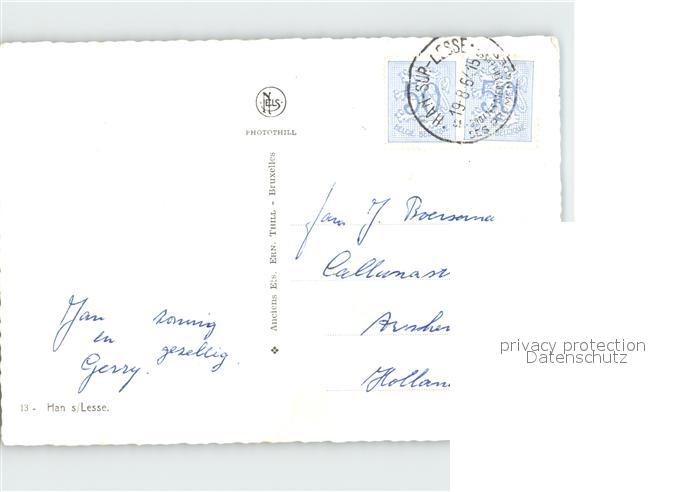 HAN-SUR-LESSE
19.8.6
15
50
50
BELGIE-BELGIQUE
NELS
PHOTOTHILL
Anciens Ets. ERN. THILL - Bruxelles
Fam J. Boersema
Callunast
Arnhem
Holland
Jan zonnig
en gezellig.
Gerry.
13 - Han s/Lesse.
privacy protection
Datenschutz